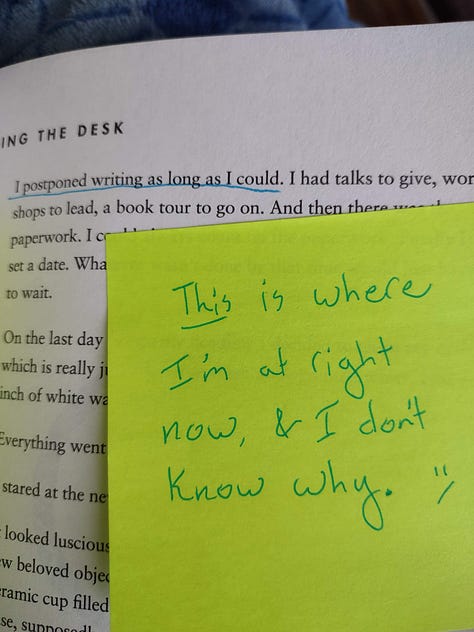 ING THE DESK
I postponed writing as long as I could. I had talks to give, wor
shops to lead, a book tour to go on. And then there was
paperwork. I
set a date.
to wait.
On the last day
which is really
inch of white
Everything went
stared at the
looked luscious
beloved
filled
This is where
I'm at right
now, & I don't
know why.